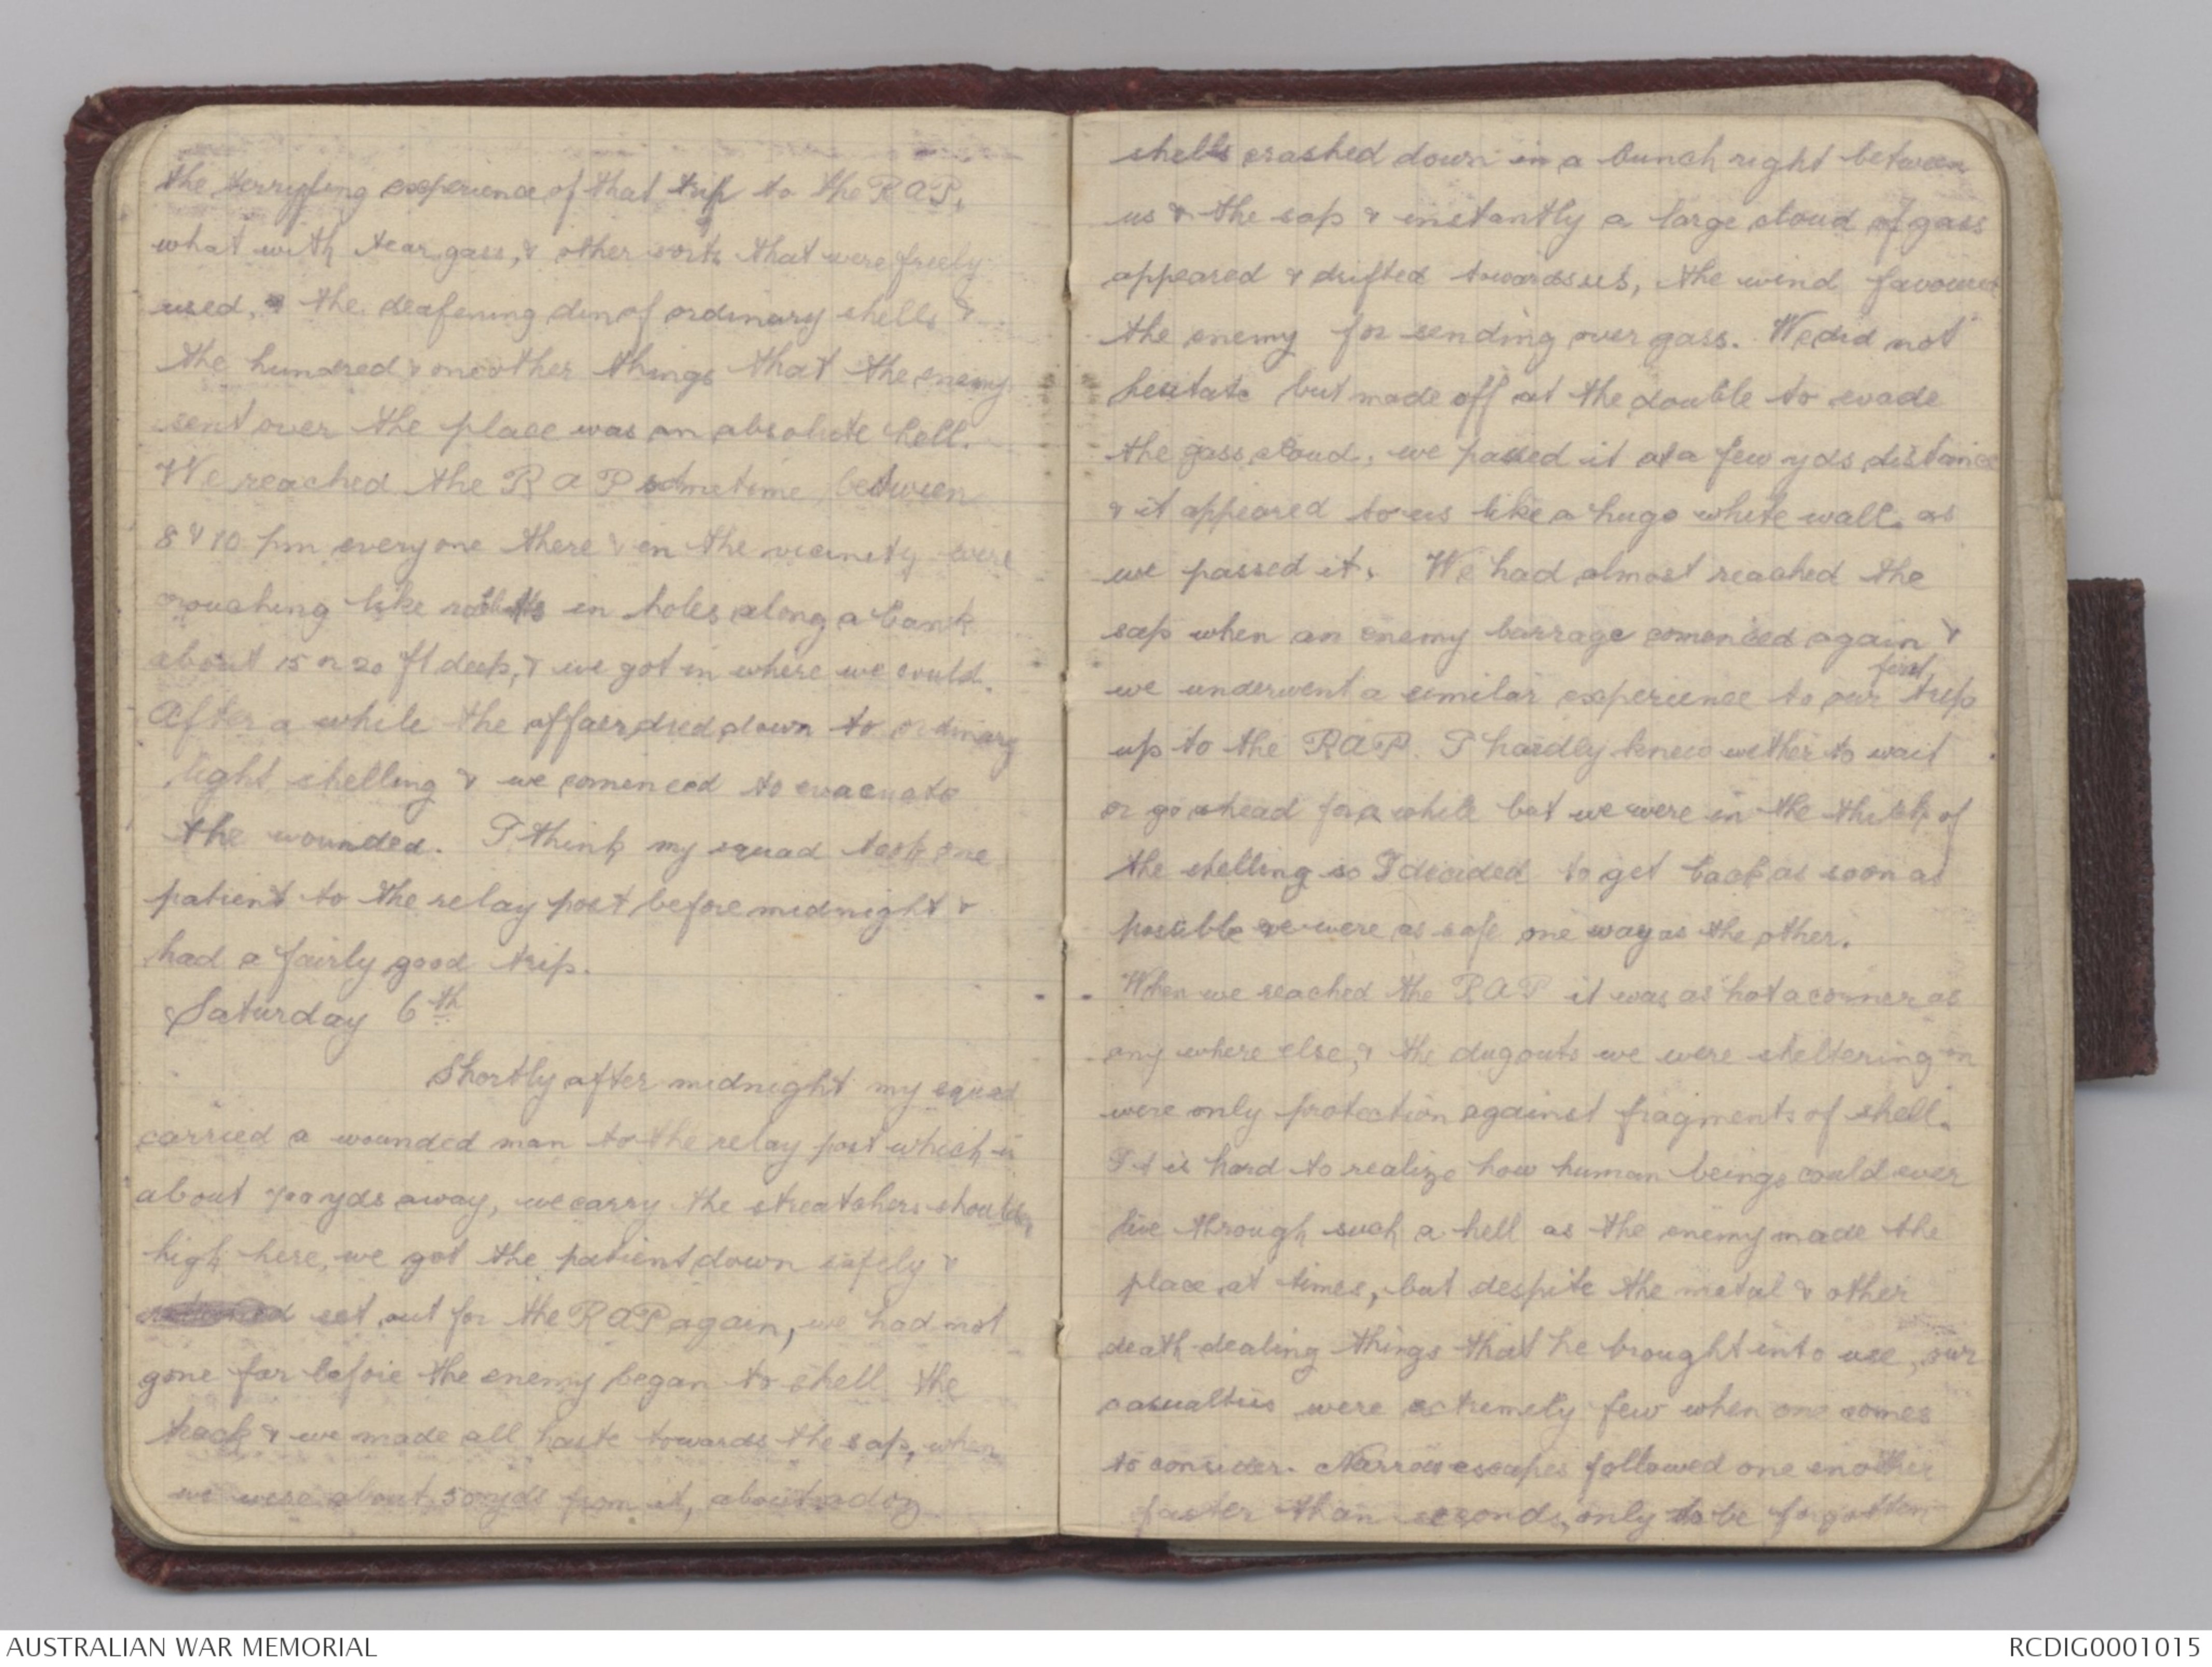 the terryfing experience of that trip to the R A P,
what with tear gass, & other sorts that were freely
used, & the deafening din of ordinary shells &
the hundred & one other things that the enemy
sent over the place was an absolute hell.
We reached the R A P sometime between
8 & 10 pm everyone there & in the vicinity were
crouching like rabbits in holes along a bank
about 15 or 20 ft deep, & we got in where we could.
After a while the affair died down to ordinary
light shelling & we comenced to evacuate
the wounded. I think my squad took one
patient to the relay post before midnight &
had a fairly good trip.
Saturday 6th
Shortly after midnight my squad
carried a wounded man to the relay post which is
about yds away, we carry the streatchers shoulder
high here, we got the patient down safely &
set out for the R A P again, we had not
gone far before the enemy began to shell the
track & we made all haste towards the sap, when
we were about 50 yds from it, about a doz
shells crashed down in a bunch right between
us & the sap & instantly a large cloud of gass
appeared & drifted towards us, the wind favoured
the enemy for sending over gass. We did not
hesitate but made off at the double to evade
the gass cloud, we passed it at a few yds distance
& it appeared to us like a huge white wall as
we passed it. We had almost reached the
sap when an enemy barrage comenced again &
we underwent a similar experience to our first trip
up to the RAP. I hardly knew wether to wait
or go ahead for a while but we were in the thick of
the shelling so I decided to get back as soon as
possible we were as safe one way as the other.
When we reached the RAP it was as hot a corner as
any where else, & the dugouts we were sheltering in
were only protection against fragments of shell.
It is hard to realize how human beings could ever
live through such a hell as the enemy made the
place at times, but despite the metal & other
death-dealing things that he brought into use, our
casualties were extremely few when one comes
to consider. Narrow escapes followed one another
faster than seconds, only to be forgotten
AUSTRALIAN WAR MEMORIAL
RCDIG0001015